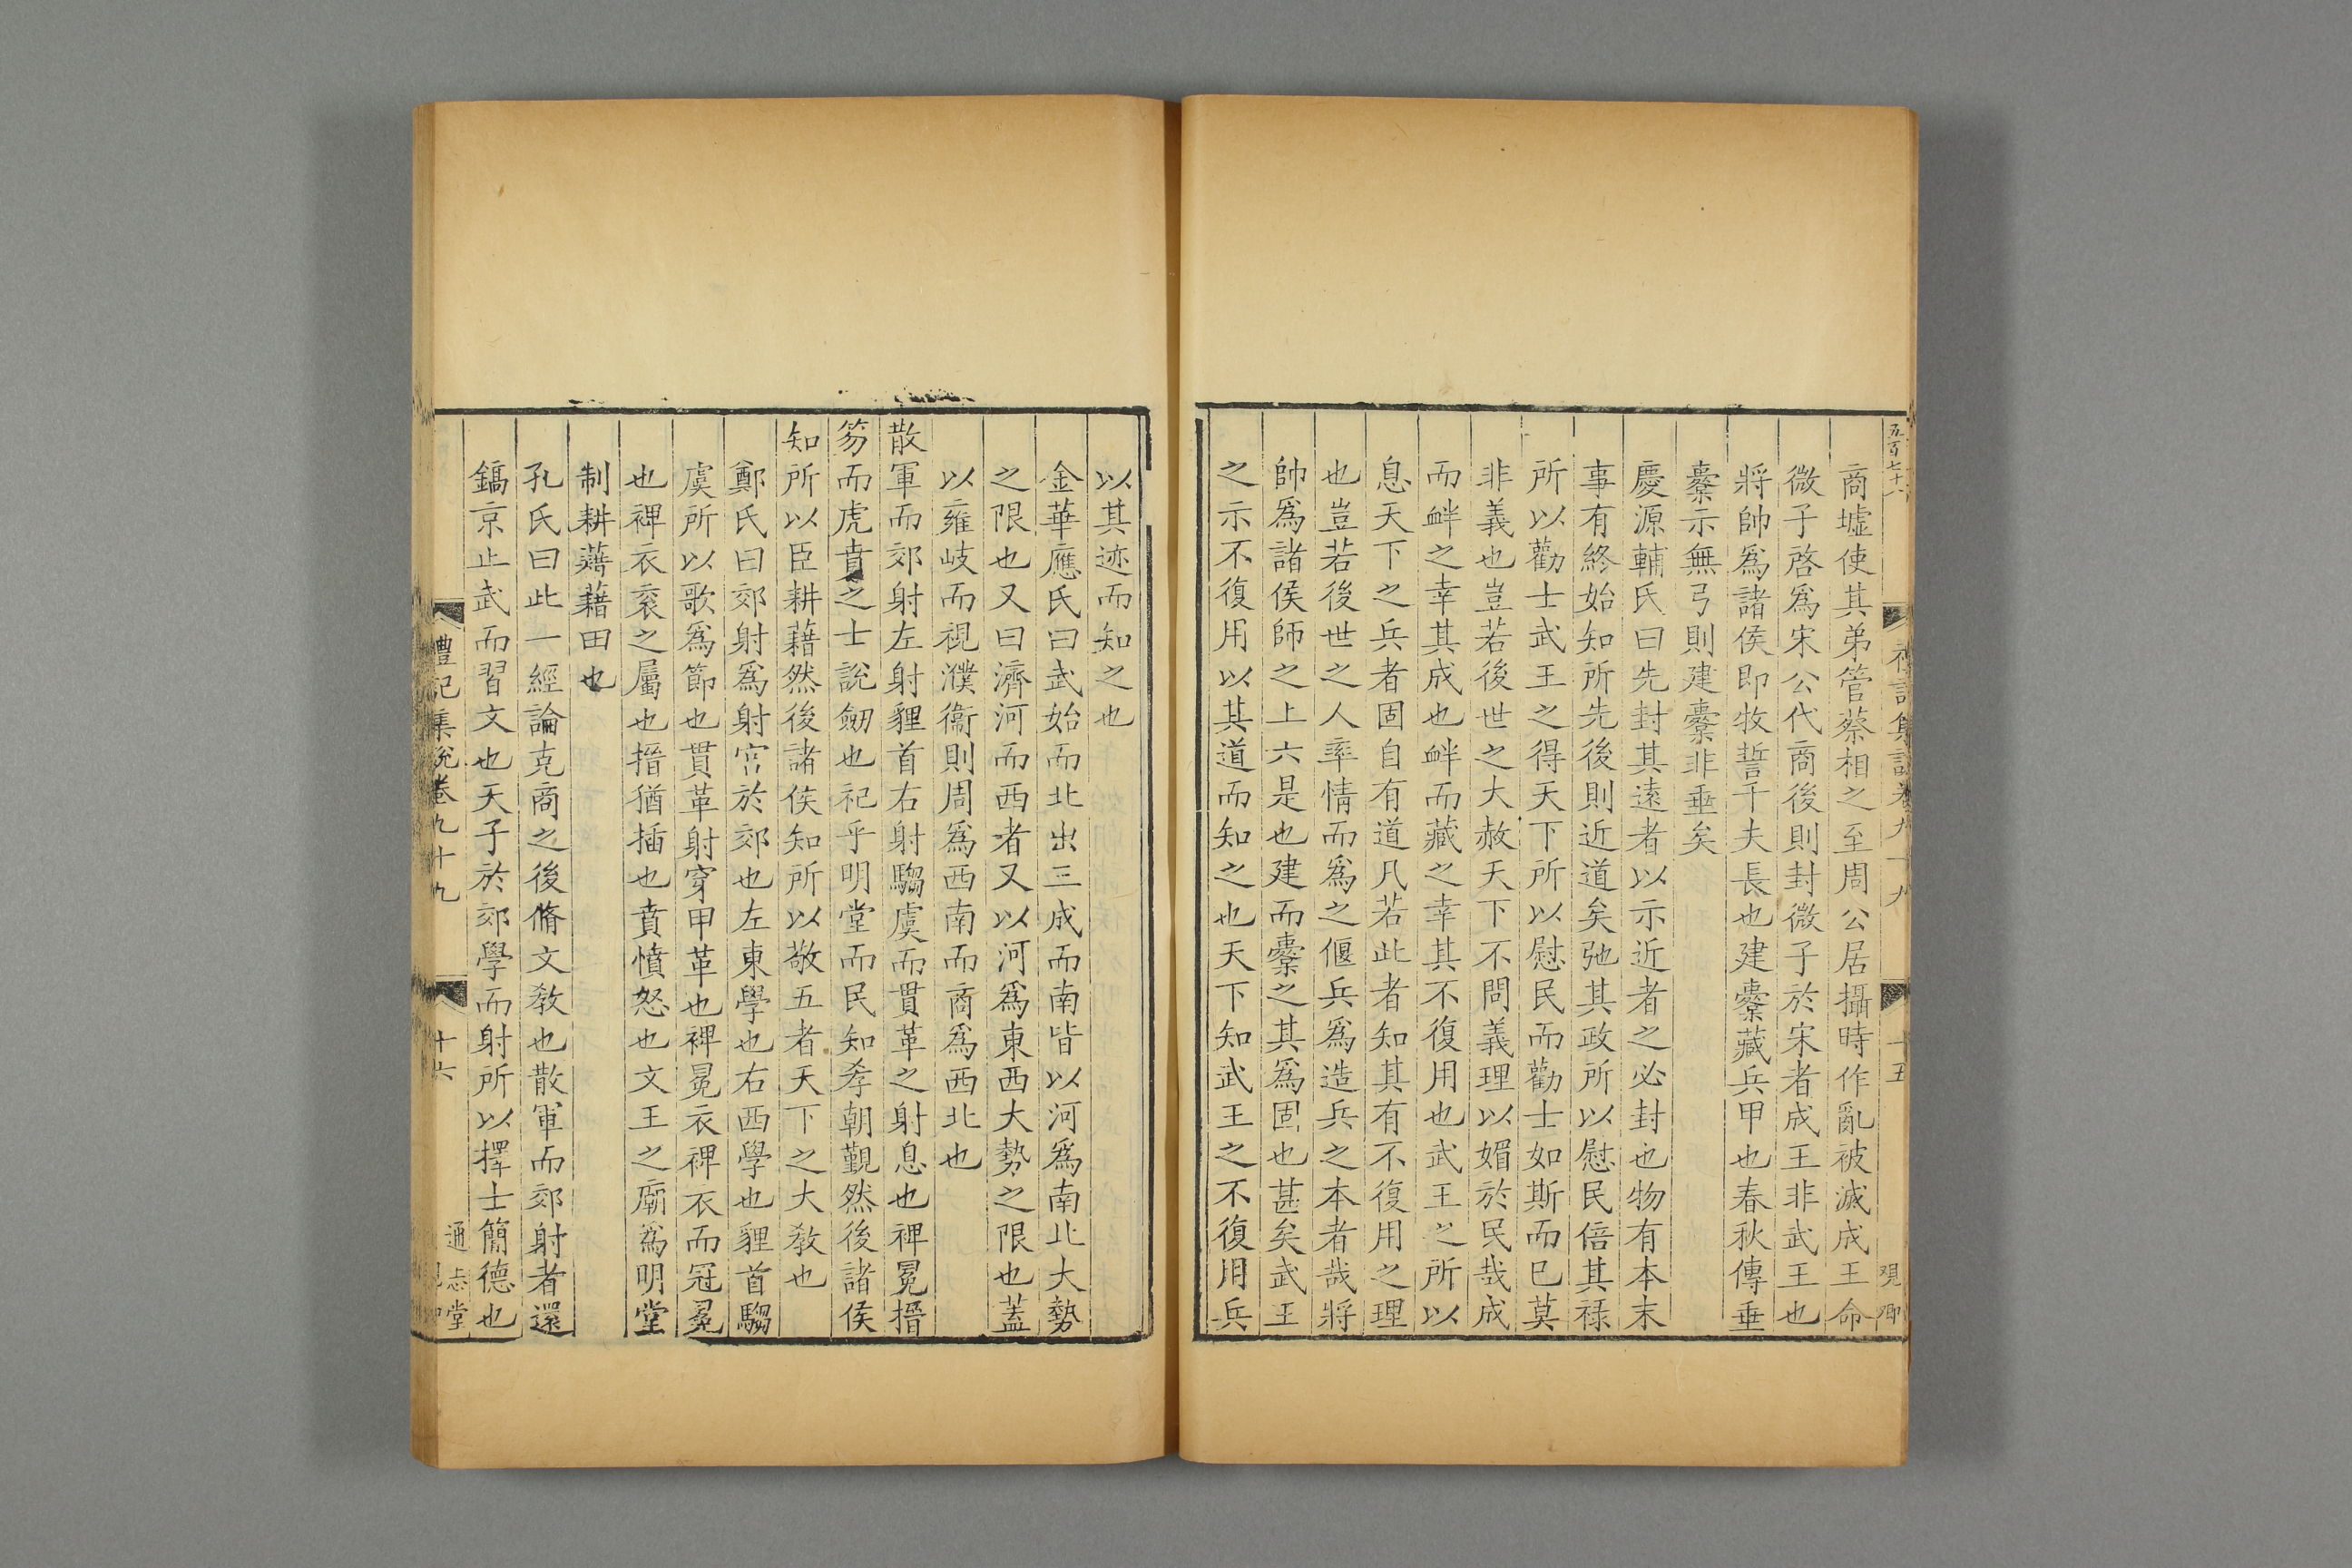 五百七十八
禮記集說卷九十九
十五
覌卿
商墟使其弟管蔡相之至周公居攝時作亂被滅成王命
微子啓爲宋公代商後則封微子於宋者成王非武王也
將帥爲諸侯即牧誓千夫長也建櫜藏兵甲也春秋傳垂
櫜示無弓則建櫜非垂矣
慶源輔氏曰先封其遠者以示近者之必封也物有本末
事有終始知所先後則近道矣弛其政所以慰民倍其祿
所以勸士武王之得天下所以慰民而勸士如斯而已莫
非義也豈若後世之大赦天下不問義理以媚於民哉成
而衅之幸其成也衅而藏之幸其不復用也武王之所以
息天下之兵者固自有道凡若此者知其有不復用之理
也豈若後世之人率情而爲之偃兵爲造兵之本者哉將
帥爲諸侯師之上六是也建而櫜之其爲固也甚矣武王
之示不復用以其道而知之也天下知武王之不復用兵
以其迹而知之也
金華應氏曰武始而北出三成而南皆以河爲南北大勢
之限也又曰濟河而西者又以河爲東西大勢之限也蓋
以雍岐而視濮衞則周爲西南而商爲西北也
散軍而郊射左射貍首右射騶虞而貫革之射息也裨冕搢
笏而虎賁之士說劒也祀乎明堂而民知孝朝覲然後諸侯
知所以臣耕藉然後諸侯知所以敬五者天下之大敎也
鄭氏曰郊射爲射宮於郊也左東學也右西學也貍首騶
虞所以歌爲節也貫革射穿甲革也裨冕衣裨衣而冠冕
也裨衣衮之屬也搢猶插也賁憤怒也文王之廟爲明堂
制耕藉藉田也
孔氏曰此一經論克商之後脩文敎也散軍而郊射者還
鎬京止武而習文也天子於郊學而射所以擇士簡德也
禮記集說卷九十九
十六
通志堂